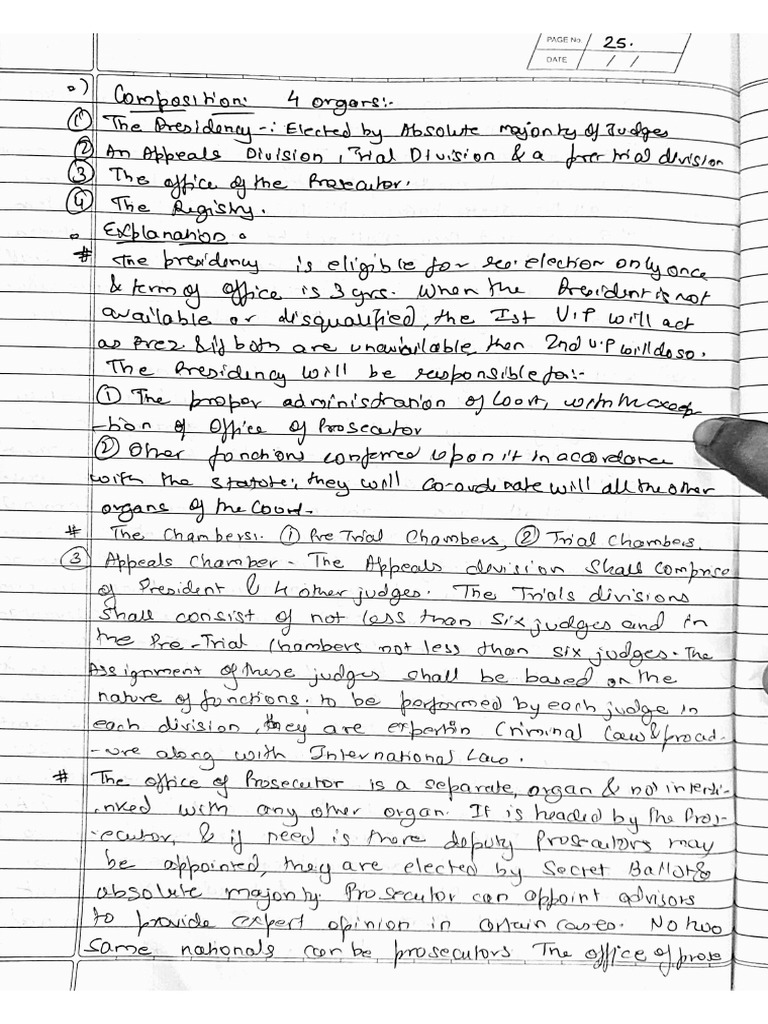 PAGE No. 25.
DATE / /
o) Composition: 4 organs:-
① The Presidency -: Elected by Absolute majority of Judges
② An Appeals Division, Trial Division & a pre trial division
③ The office of the Prosecutor.
④ The Registry.
o Explanation o
# The presidency is eligible for re-election only once
& term of office is 3 yrs. When the President is not
available or disqualified, the Ist V.P will act
as Prez & if both are unavailable then 2nd V.P will do so.
The Presidency will be responsible for:-
① The proper administration of Court, with the excep
-tion of Office of Prosecutor
② Other functions conferred upon it in accordance
with the statute; they will co-ordinate will all the other
organs of the Court.
# The Chambers:. ① Pre Trial Chambers, ② Trial Chambers.
③ Appeals Chamber - The Appeals devision Shall comprise
of President & 4 other judges. The Trials divisions
shall consist of not less than six judges and in
the Pre-Trial Chambers not less than six judges. The
Assignment of these judges shall be based on the
nature of functions. to be performed by each judge in
each division, they are expert in Criminal law & proced
-ure along with International Law.
# The office of Prosecutor is a separate, organ & not interli-
-nked with any other organ. It is headed by the Pros-
-ecutor, & if need is there deputy Prosecutors may
be appointed, they are elected by Secret Ballot &
absolute majority. Prosecutor can appoint advisors
to provide expert opinion in certain cases. No two
same nationals can be prosecutors. The office of prose